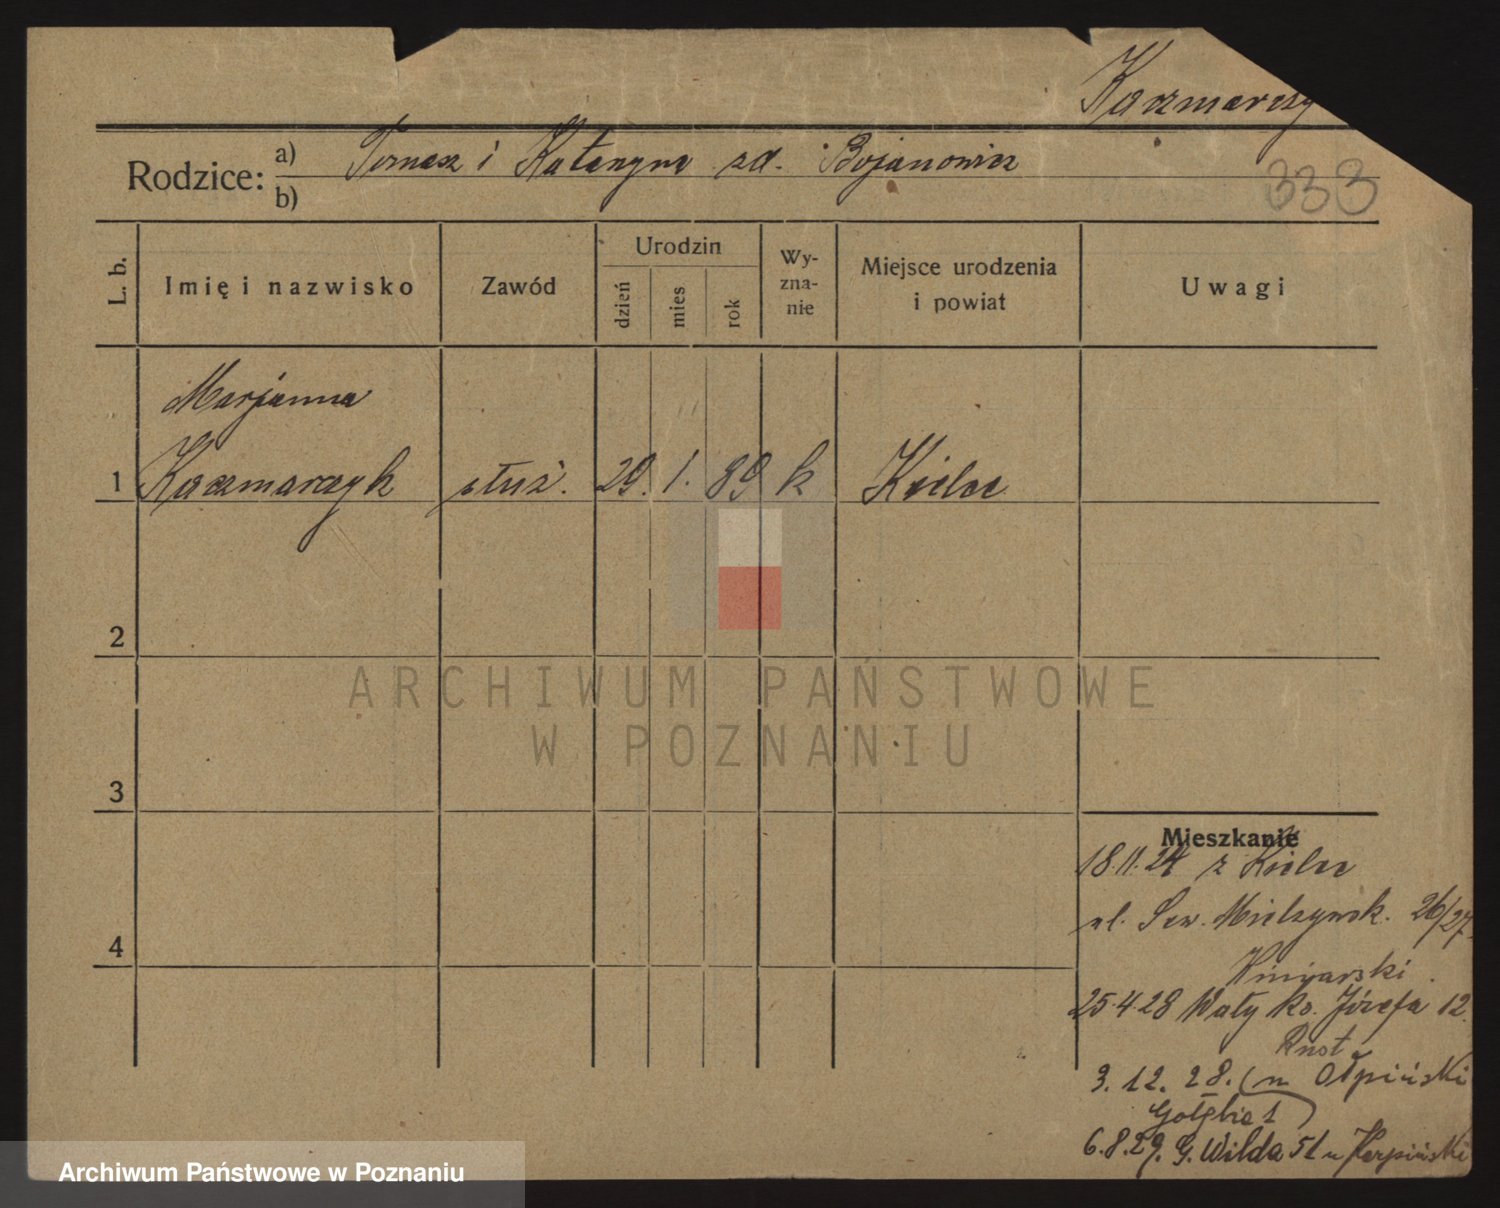 Kaczmarczy
Rodzice: a) Tomasz i Katarzyna zd. Bojanowicz
b)
333
L. b.
Imię i nazwisko
Zawód
Urodzin
dzień
mies
rok
Wy-
zna-
nie
Miejsce urodzenia
i powiat
Uwagi
Marjanna
1 Kaczmarczyk służ. 29. 1. 89 k Kielce
2
3
4
ARCHIWUM PAŃSTWOWE
W POZNANIU
Mieszkanie
18.11.24 z Kielce
ul. Sew. Mielżyńsk. 26/27
Winiarski
25.4.28 Wały ks. Józefa 12.
3.12.28. (u
Gołębia 1
6.8.29. G. Wilda 51 u
Archiwum Państwowe w Poznaniu